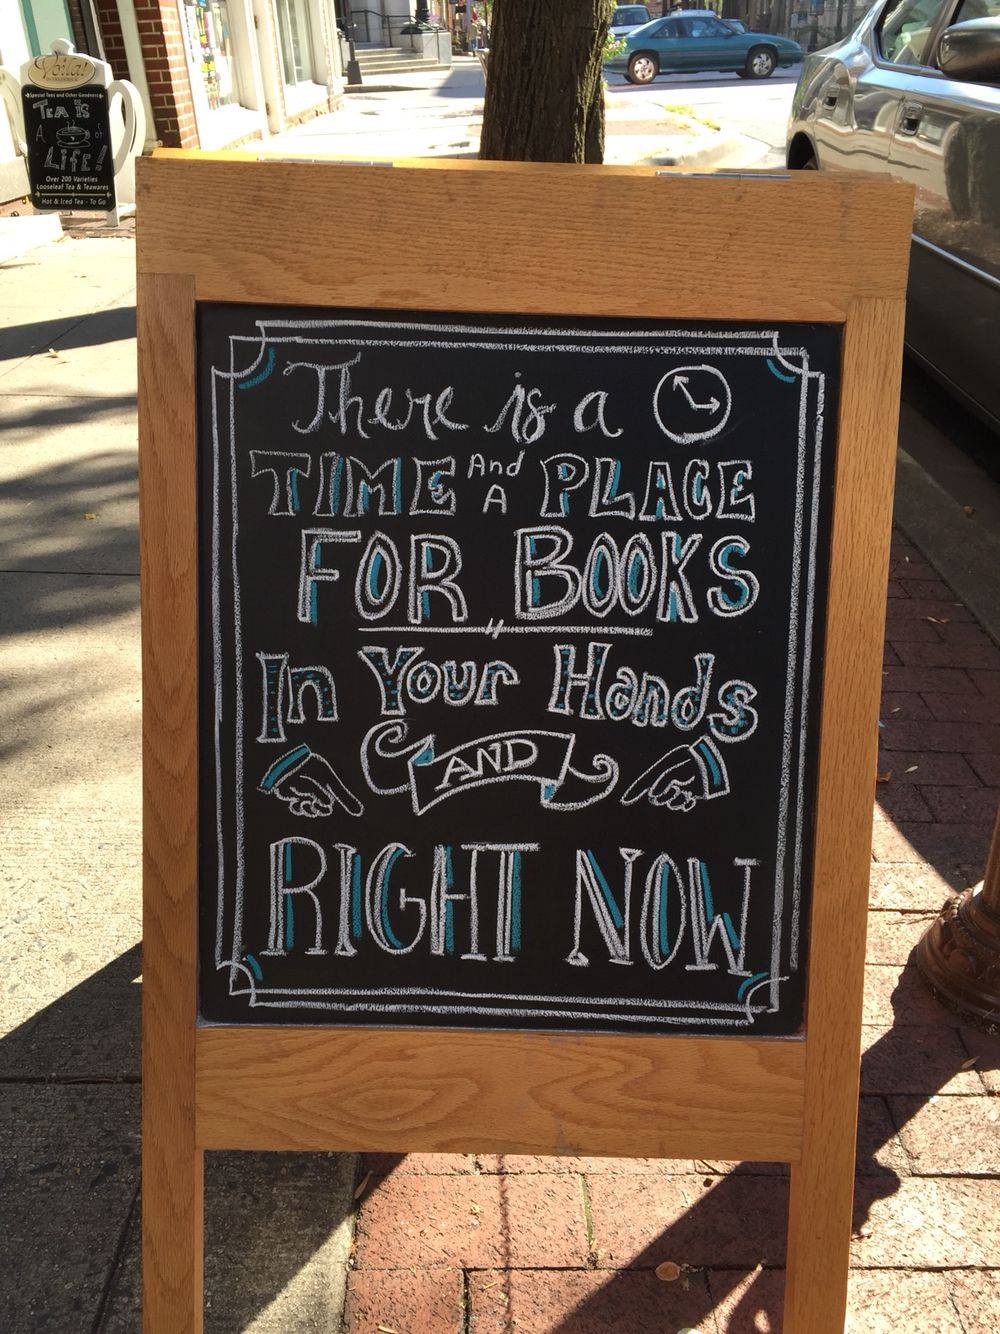 Voila!
Special Teas and Other Goodness
TEA IS
A of
LIFE!
Over 200 Varieties
Looseleaf Tea & Teawares
Hot & Iced Tea - To Go
There is a
TIME And A PLACE
FOR BOOKS
In Your Hands
AND
RIGHT NOW